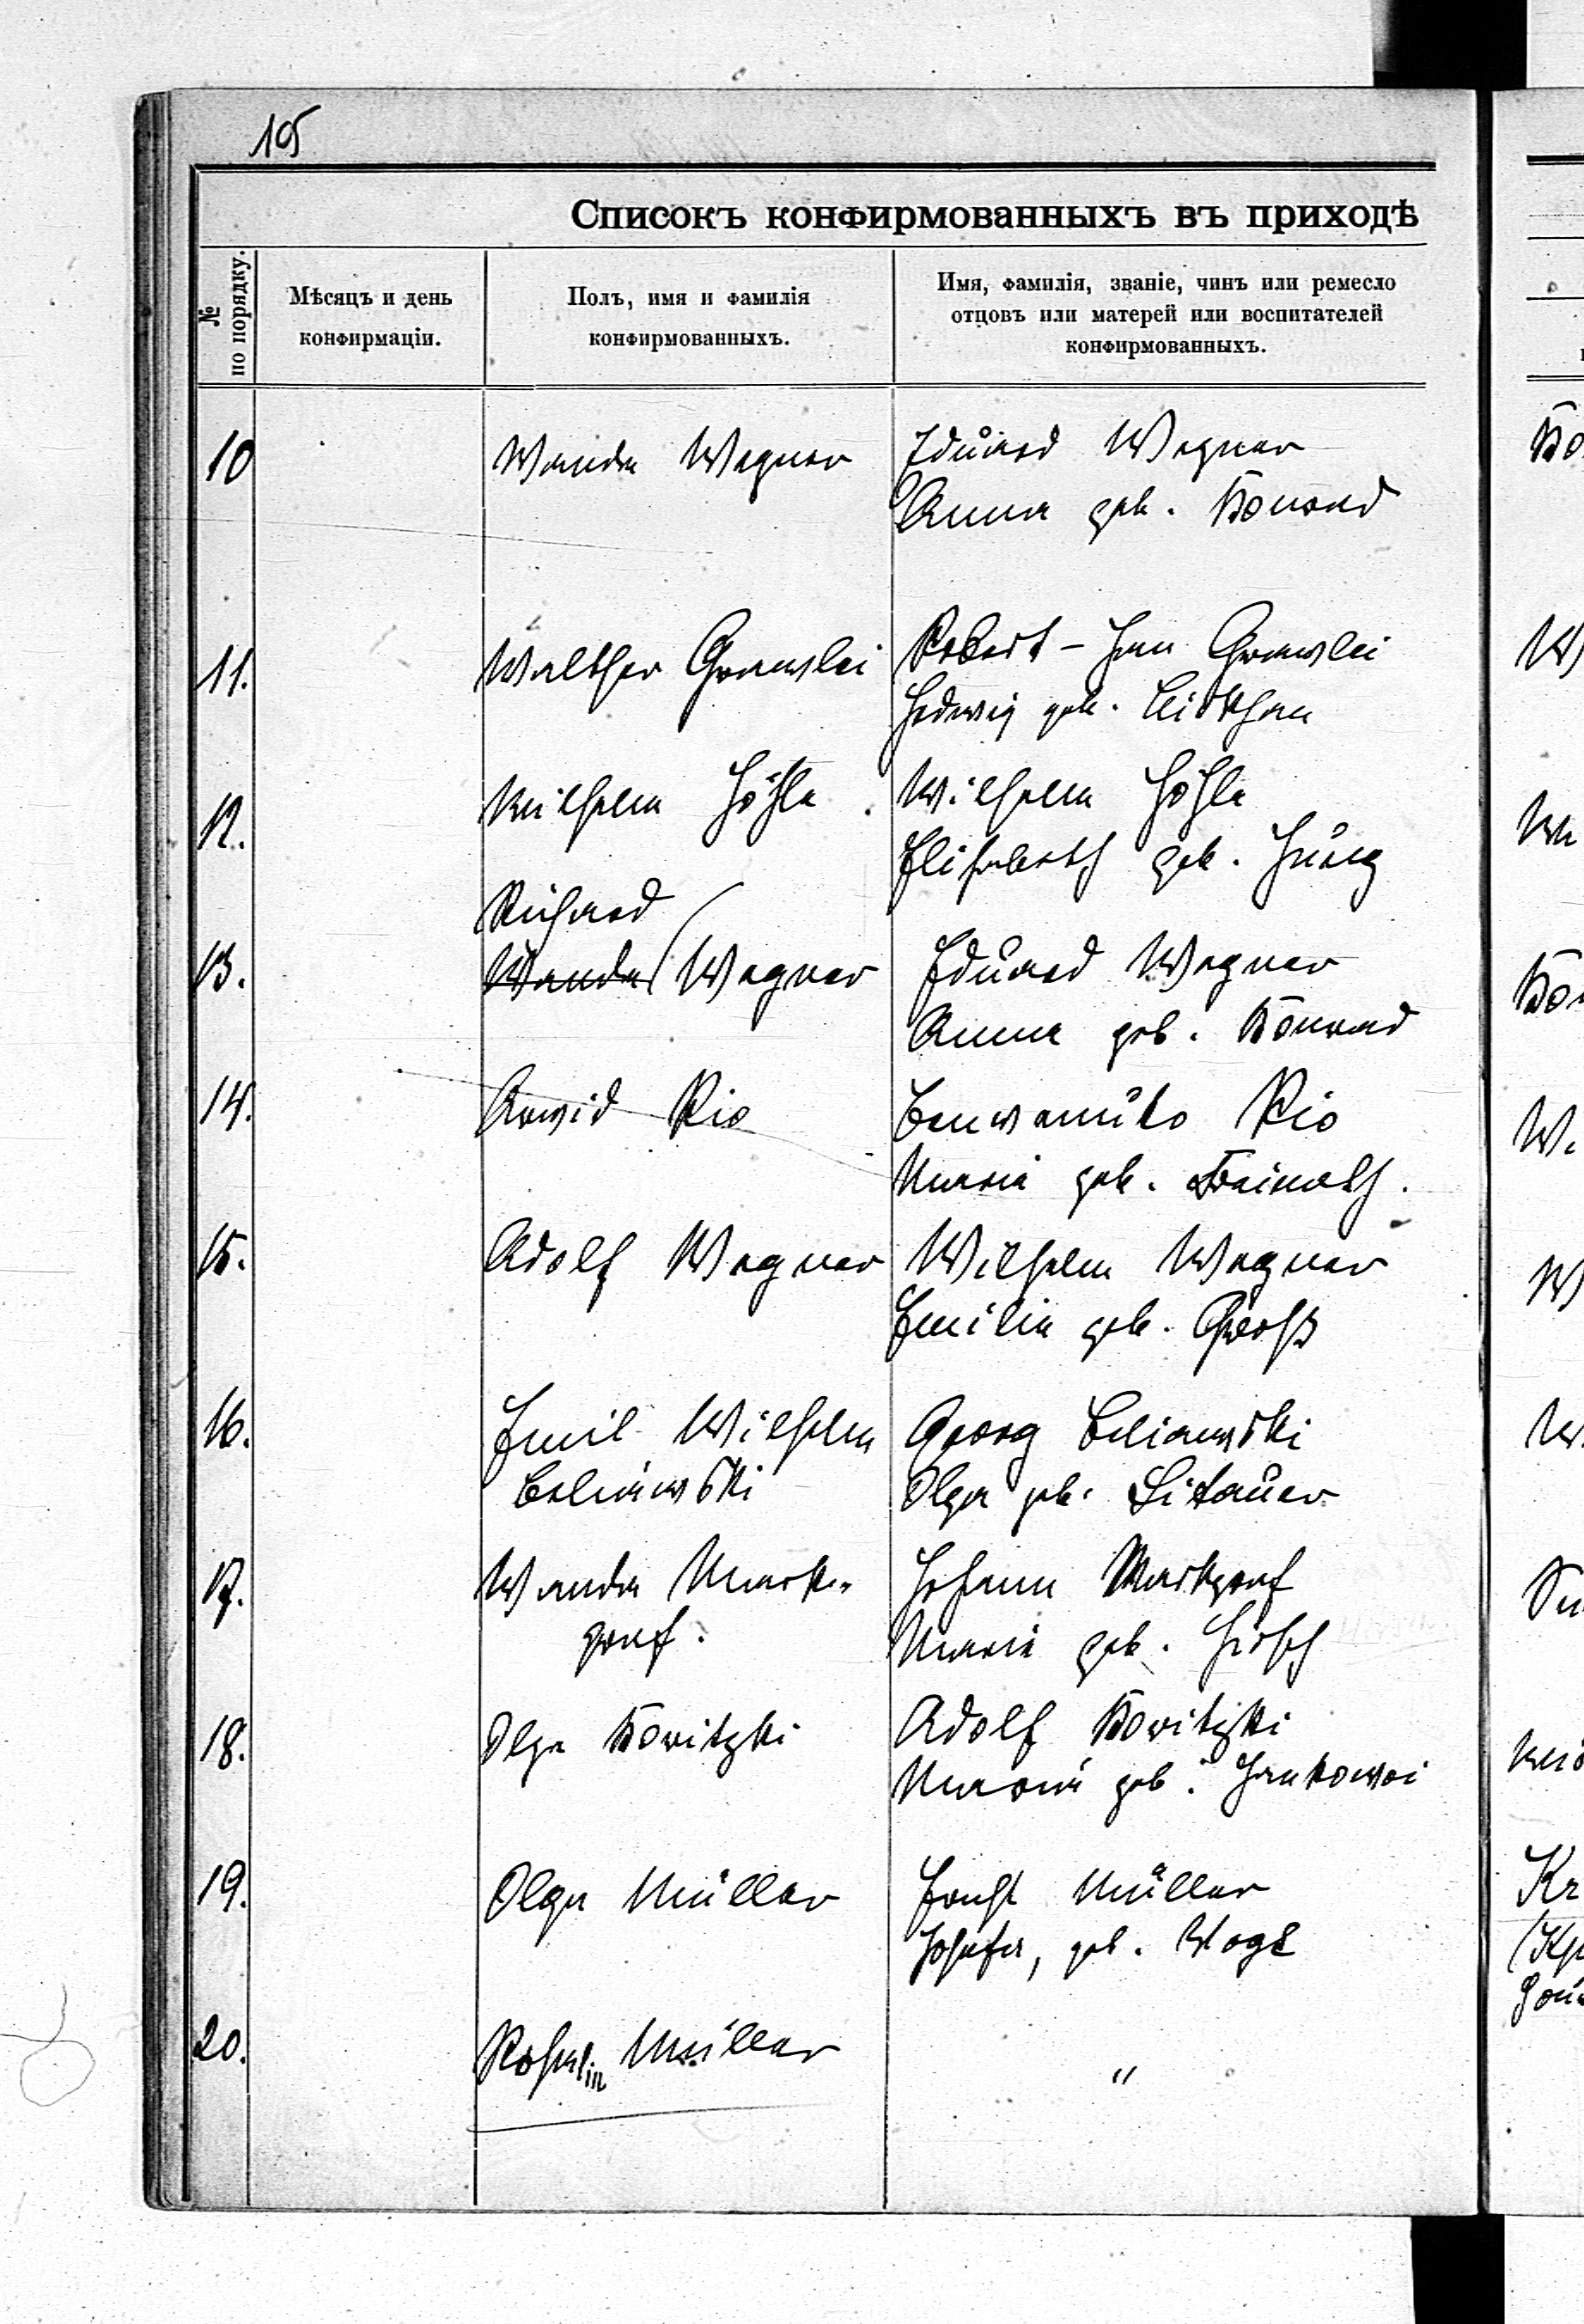 105
Списокъ конфирмованныхъ въ приходѣ
№ по порядку.
Мѣсяцъ и день
конфирмаціи.
Полъ, имя и фамилія
конфирмованныхъ.
Имя, фамилія, званіе, чинъ или ремесло
отцовъ или матерей или воспитателей
конфирмованныхъ.
10 Wanda Wegner Eduard Wegner
Anna geb. Konrad
11. Walther Robert-
Hedwig geb.
12. Wilhelm Höhle Wilhelm Höhle
Elisabeth geb.
Richard
13. Wanda Wegner Eduard Wegner
Anna geb. Konrad
14. Arwid Rio Rio
Maria geb.
15. Adolf Wegner Wilhelm Wegner
Emilie geb. Groß
16. Emil Wilhelm Georg Beliawski
Beliawski Olga geb. Litauer
17. Wanda Mark- Johann Markgraf
graf. Maria geb. Hirsch
18. Olga Koritzki Adolf Koritzki
Maria geb.
19. Olga Müller Ernst Müller
Josefa, geb.
20. Rosalin Müller "